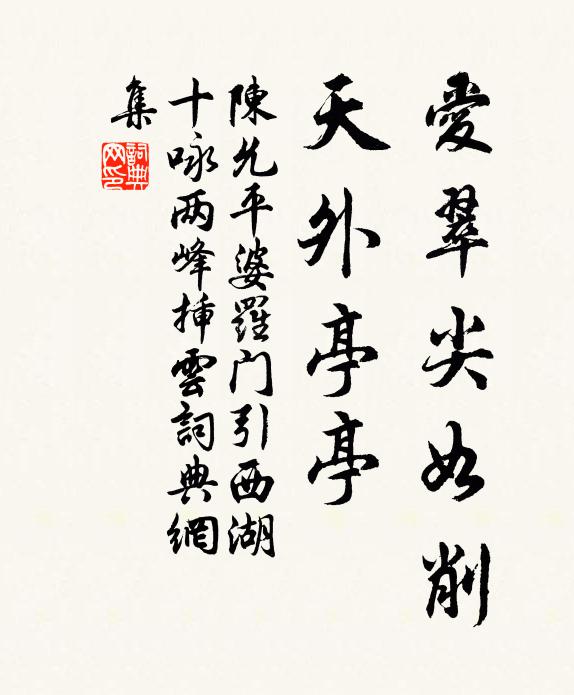 愛翠尖如削
天外亭亭
陳允平婆羅门引西湖
十咏两峰揷雲詞典網
集
詞典
网印